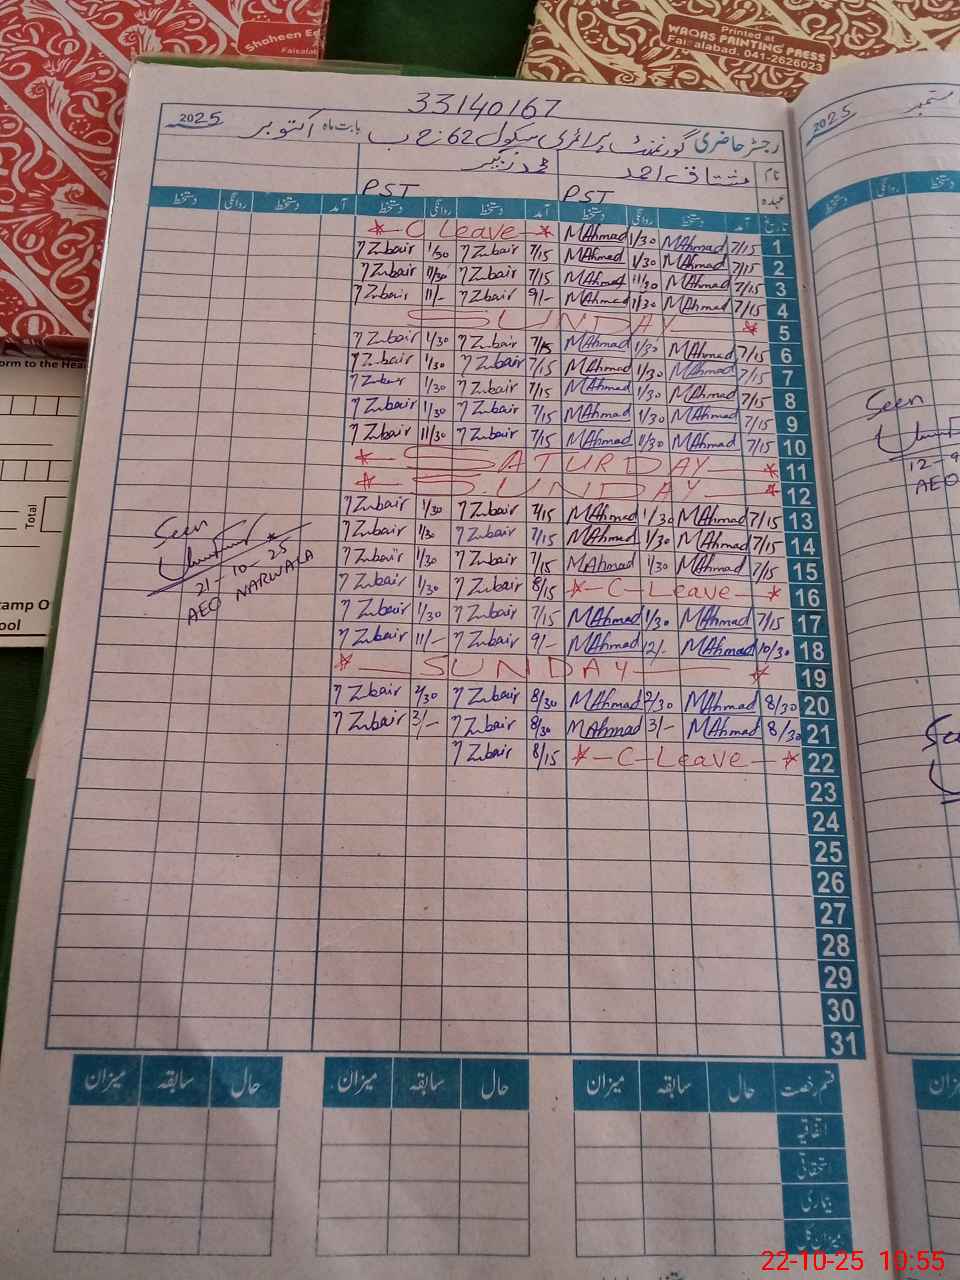 Shaheen
Faisala
Printed at
WAQAS PAINTING PRESS
Faisalabad. 041-2626023
33140167
رجسٹر حاضری گورنمنٹ پرائمری سکول 62 ج ب بابت ماہ اکتوبر 2025
نام مشتاق احمد محمد زبیر
عہدہ PST PST
تاریخ آمد دستخط روانگی دستخط آمد دستخط روانگی دستخط آمد دستخط روانگی دستخط
1 7/15 MAhmad 1/30 MAhmad * C Leave *
2 7/15 MAhmad 1/30 MAhmad 7/15 Zubair 1/30 Zubair
3 7/15 MAhmad 11/30 MAhmad 7/15 Zubair 11/30 Zubair
4 7/15 MAhmad 1/30 MAhmad 9/- Zubair 11/- Zubair
5 SUNDAY *
6 7/15 MAhmad 1/30 MAhmad 7/15 Zubair 1/30 Zubair
7 7/15 MAhmad 1/30 MAhmad 7/15 Zubair 1/30 Zubair
8 7/15 MAhmad 1/30 MAhmad 7/15 Zubair 1/30 Zubair
9 7/15 MAhmad 1/30 MAhmad 7/15 Zubair 1/30 Zubair
10 7/15 MAhmad 11/30 MAhmad 7/15 Zubair 11/30 Zubair
11 * SATURDAY *
12 * SUNDAY *
13 7/15 MAhmad 1/30 MAhmad 7/15 Zubair 1/30 Zubair
14 7/15 MAhmad 1/30 MAhmad 7/15 Zubair 1/30 Zubair
15 7/15 MAhmad 1/30 MAhmad 7/15 Zubair 1/30 Zubair
16 * C-Leave * 8/15 Zubair 1/30 Zubair
17 7/15 MAhmad 1/30 MAhmad 7/15 Zubair 1/30 Zubair
18 10/30 MAhmad 12/- MAhmad 9/- Zubair 11/- Zubair
19 * SUNDAY *
20 8/30 MAhmad 2/30 MAhmad 8/30 Zubair 2/30 Zubair
21 8/30 MAhmad 3/- MAhmad 8/30 Zubair 3/- Zubair
22 * C-Leave * 8/15 Zubair
23
24
25
26
27
28
29
30
31
Seen
21-10-25
AEO NARWALA
قسم رخصت حال سابقہ میزان حال سابقہ میزان حال سابقہ میزان
اتفاقیہ
استحقاقی
بیماری
میزان کل
2025 ستمبر
دستخط روانگی
Seen
12-9
AEO
orm to the Hea
Total
tamp O
ool
22-10-25 10:55